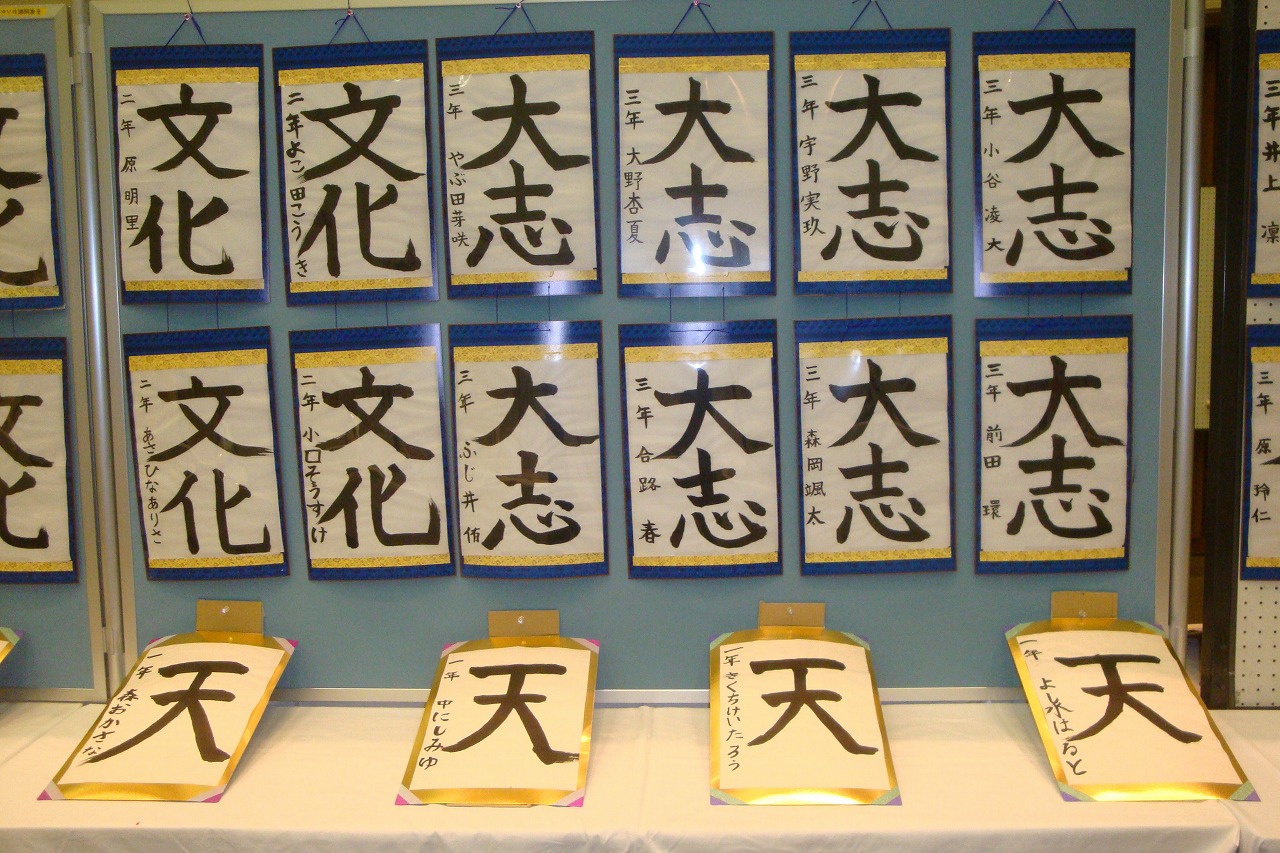 文化
二年 原 明里
文化
二年 よこ田こうき
大志
三年 やぶ田芽咲
大志
三年 大野杏夏
大志
三年 宇野実玖
大志
三年 小谷凌大
三年 井上 凜
文化
二年 あさひなありさ
文化
二年 小口そうすけ
大志
三年 ふじ井 侑
大志
三年 合路 春
大志
三年 森岡颯太
大志
三年 前田 環
三年 原 玲仁
天
一年 森おかさな
天
一年 中にしみゆ
天
一年 きくちけいたろう
天
一年 よし水はると